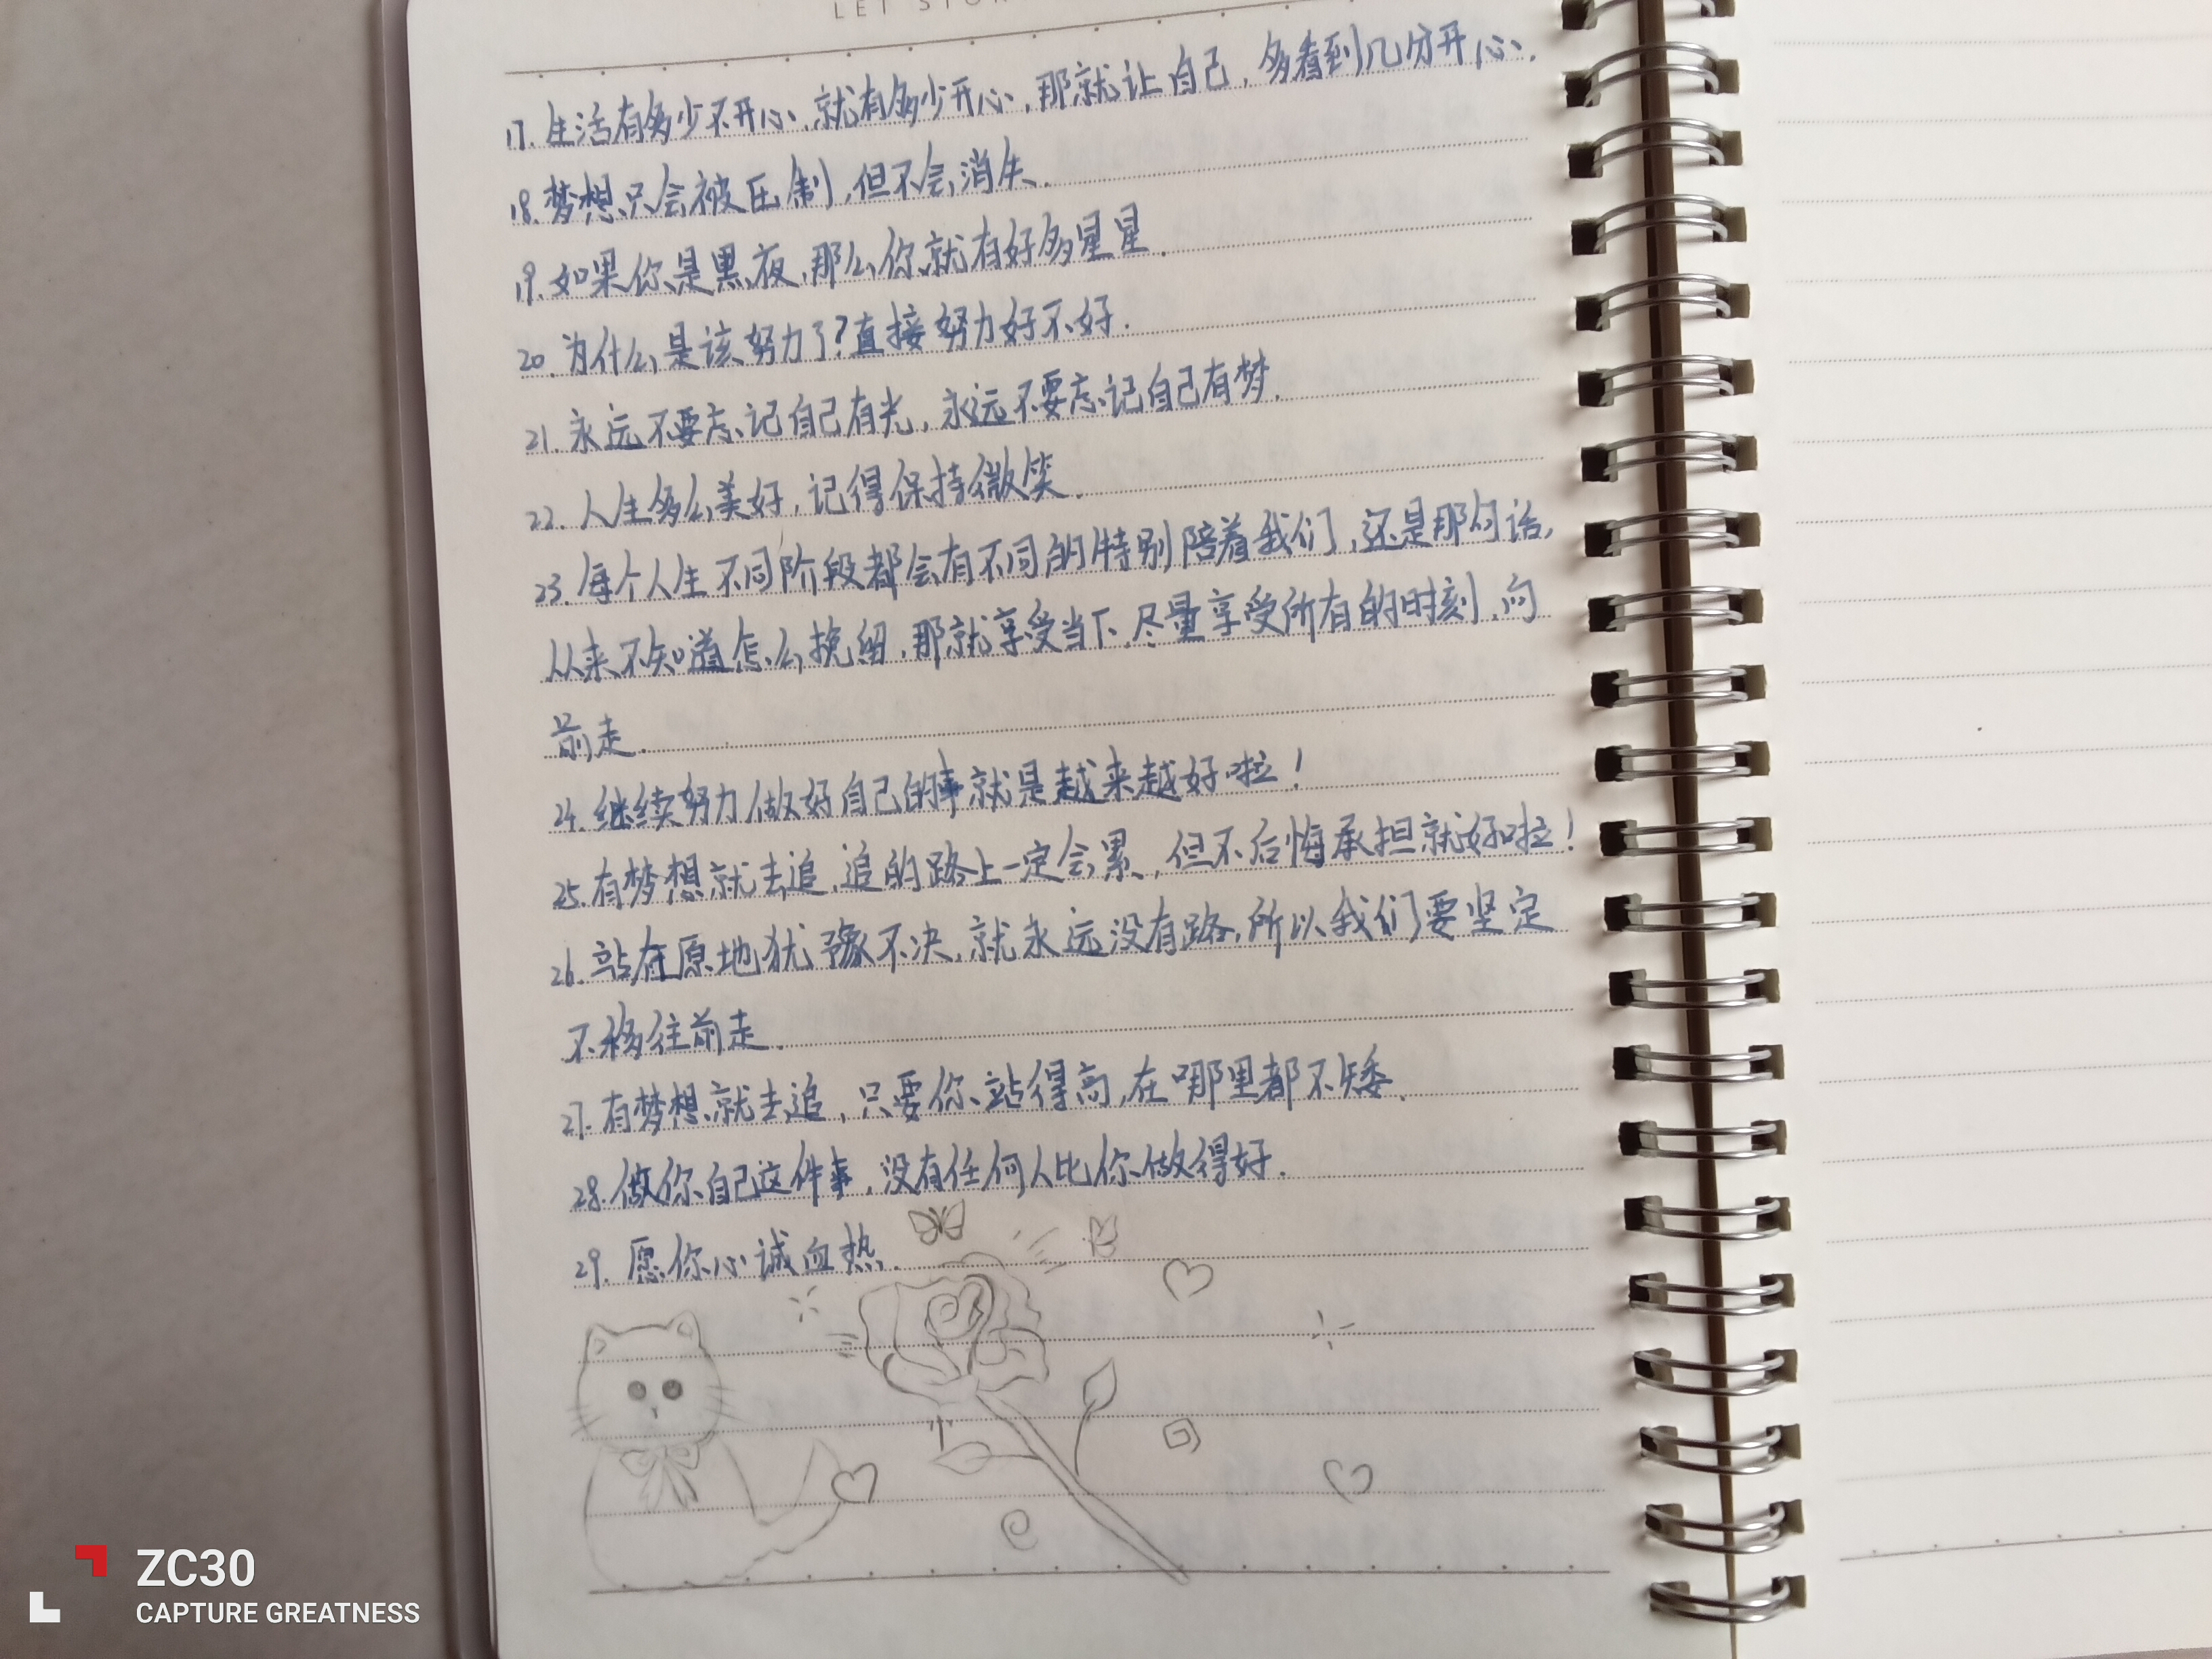 LET STOR
17. 生活有多少不开心,就有多少开心,那就让自己,多看到几分开心.
18. 梦想只会被压制,但不会消失.
19. 如果你是黑夜,那么你就有好多星星.
20. 为什么是该努力了?直接努力好不好.
21. 永远不要忘记自己有光,永远不要忘记自己有梦.
22. 人生多么美好,记得保持微笑.
23. 每个人生不同阶段都会有不同的特别陪着我们,还是那句话,
从来不知道怎么挽留,那就享受当下.尽量享受所有的时刻.向
前走.
24. 继续努力做好自己的事就是越来越好啦!
25. 有梦想就去追,追的路上一定会累,但不后悔承担就好啦!
26. 站在原地犹豫不决,就永远没有路,所以我们要坚定
不移往前走.
27. 有梦想就去追,只要你站得高,在哪里都不矮.
28. 做你自己这件事,没有任何人比你做得好.
29. 愿你心诚血热.
ZC30
CAPTURE GREATNESS